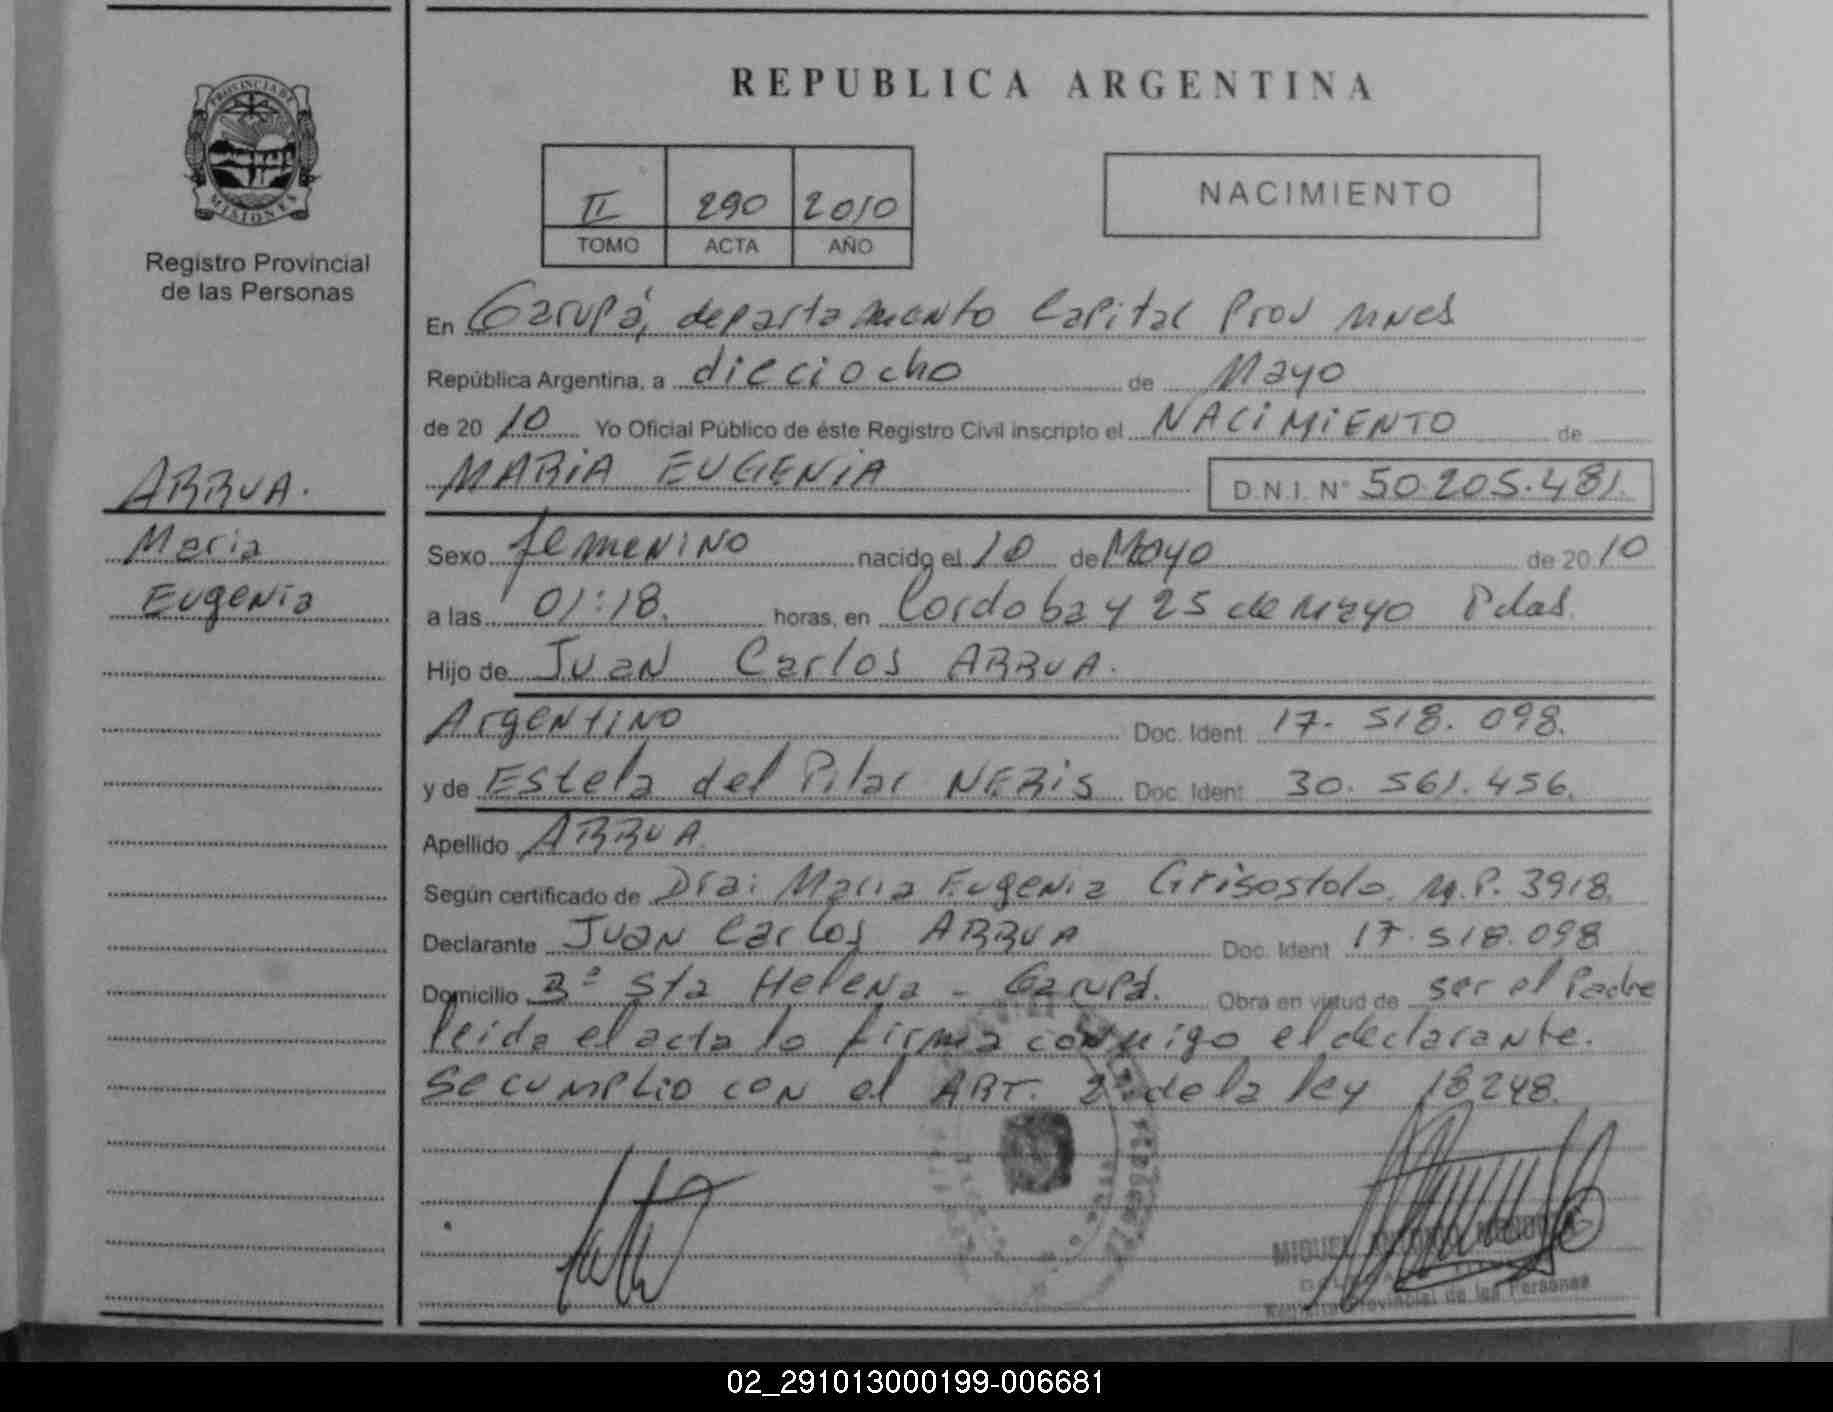 REPUBLICA ARGENTINA
PROVINCIA DE MISIONES
Registro Provincial
de las Personas
II 290 2010
TOMO ACTA AÑO
NACIMIENTO
En Garupá, departamento Capital Prov Mnes
República Argentina, a dieciocho de Mayo
de 20 10 Yo Oficial Público de éste Registro Civil inscripto el NACIMIENTO de
MARIA EUGENIA D.N.I. N° 50.205.481.
ARRUA.
Maria
Eugenia
Sexo femenino nacido el 10 de Mayo de 20 10
a las 01:18. horas, en Cordoba y 25 de Mayo Pdas.
Hijo de Juan Carlos ARRUA.
Argentino Doc. Ident 17. 518. 098.
y de Estela del Pilar NERIS Doc. Ident 30. 561. 456.
Apellido ARRUA.
Según certificado de Dra: Maria Eugenia Grisostolo, M.P. 3918.
Declarante Juan Carlos ARRUA Doc. Ident 17.518.098
Domicilio Bº Sta Helena - Garupá. Obra en virtud de ser el Padre
leida el acta lo firma conmigo el declarante.
Se cumplio con el ART. 2º de la ley 18248.
MIGUEL
Registro Provincial de las Personas
02_291013000199-006681